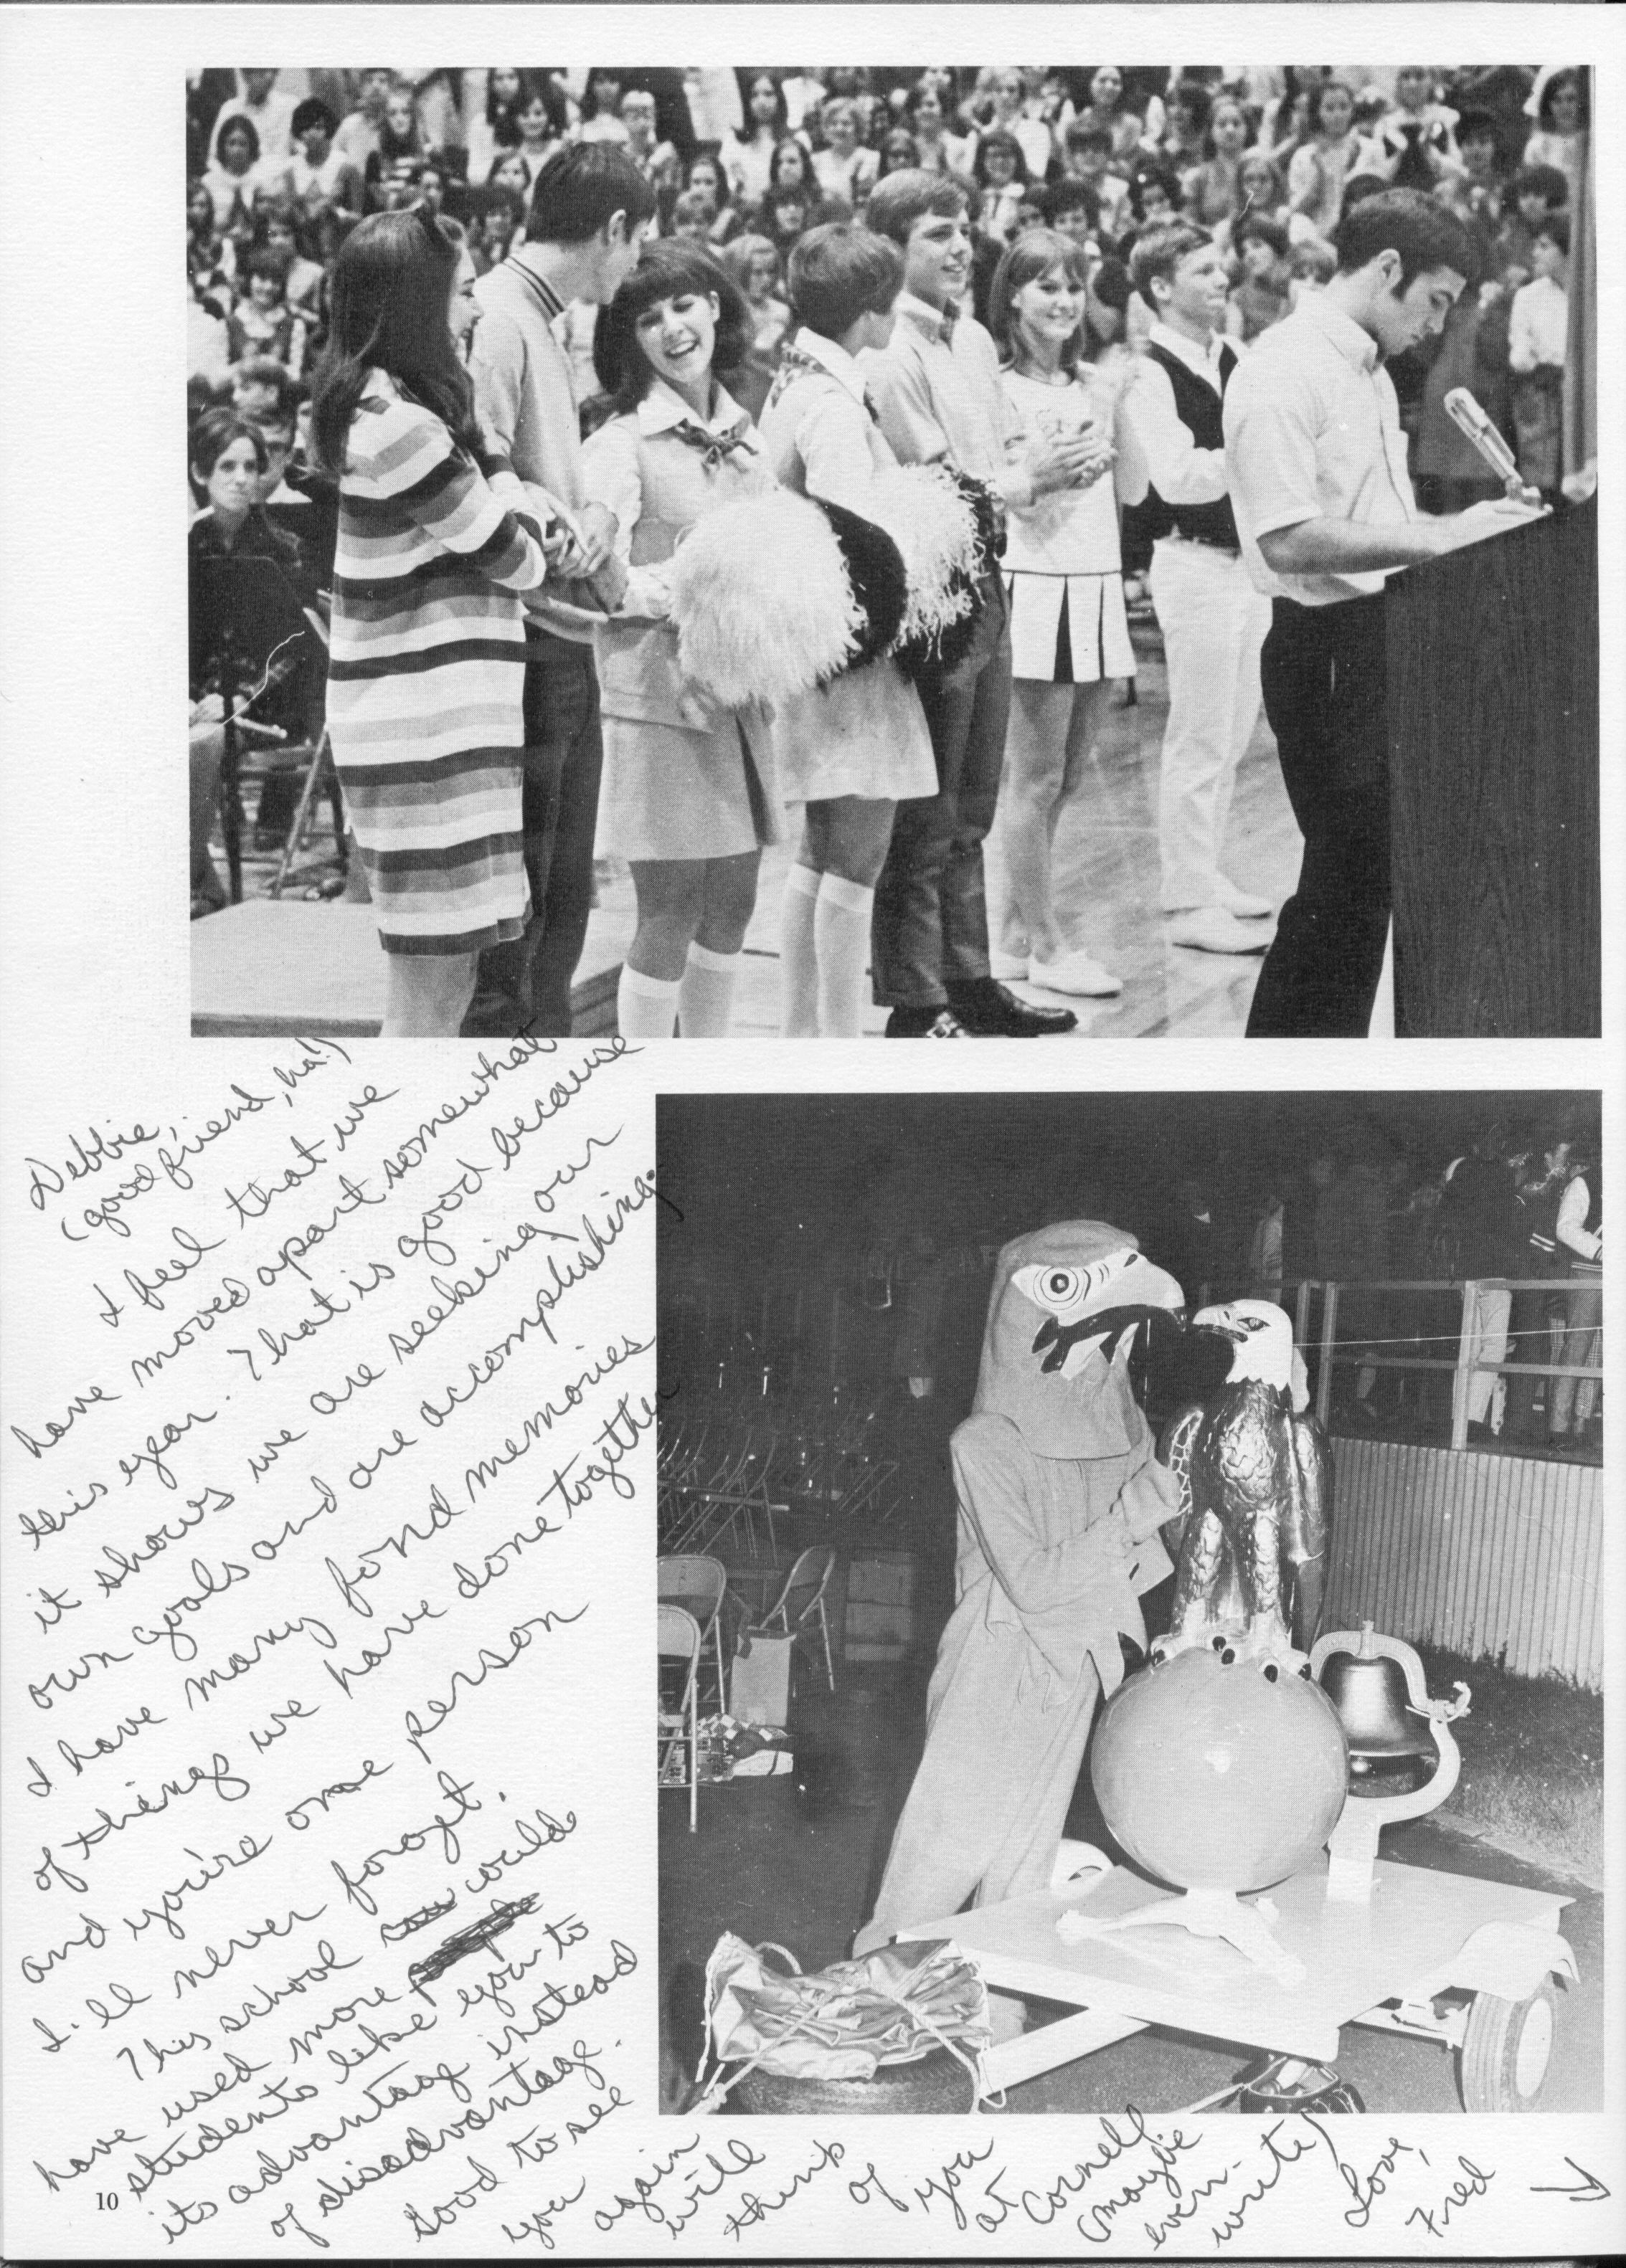 Debbie,
(good friend, ha!)
I feel that we
have moved apart somewhat
this year. That is good because
it shows we are seeking our
own goals and are accomplishing.
I have many fond memories
of things we have done together
and you're one person
I'll never forget.
This school could
have used more
students like you to
its advantage instead
of disadvantage.
Good to see
you again
will
think
of
you
at
Cornell
(maybe
even
write)
Love,
Fred
10